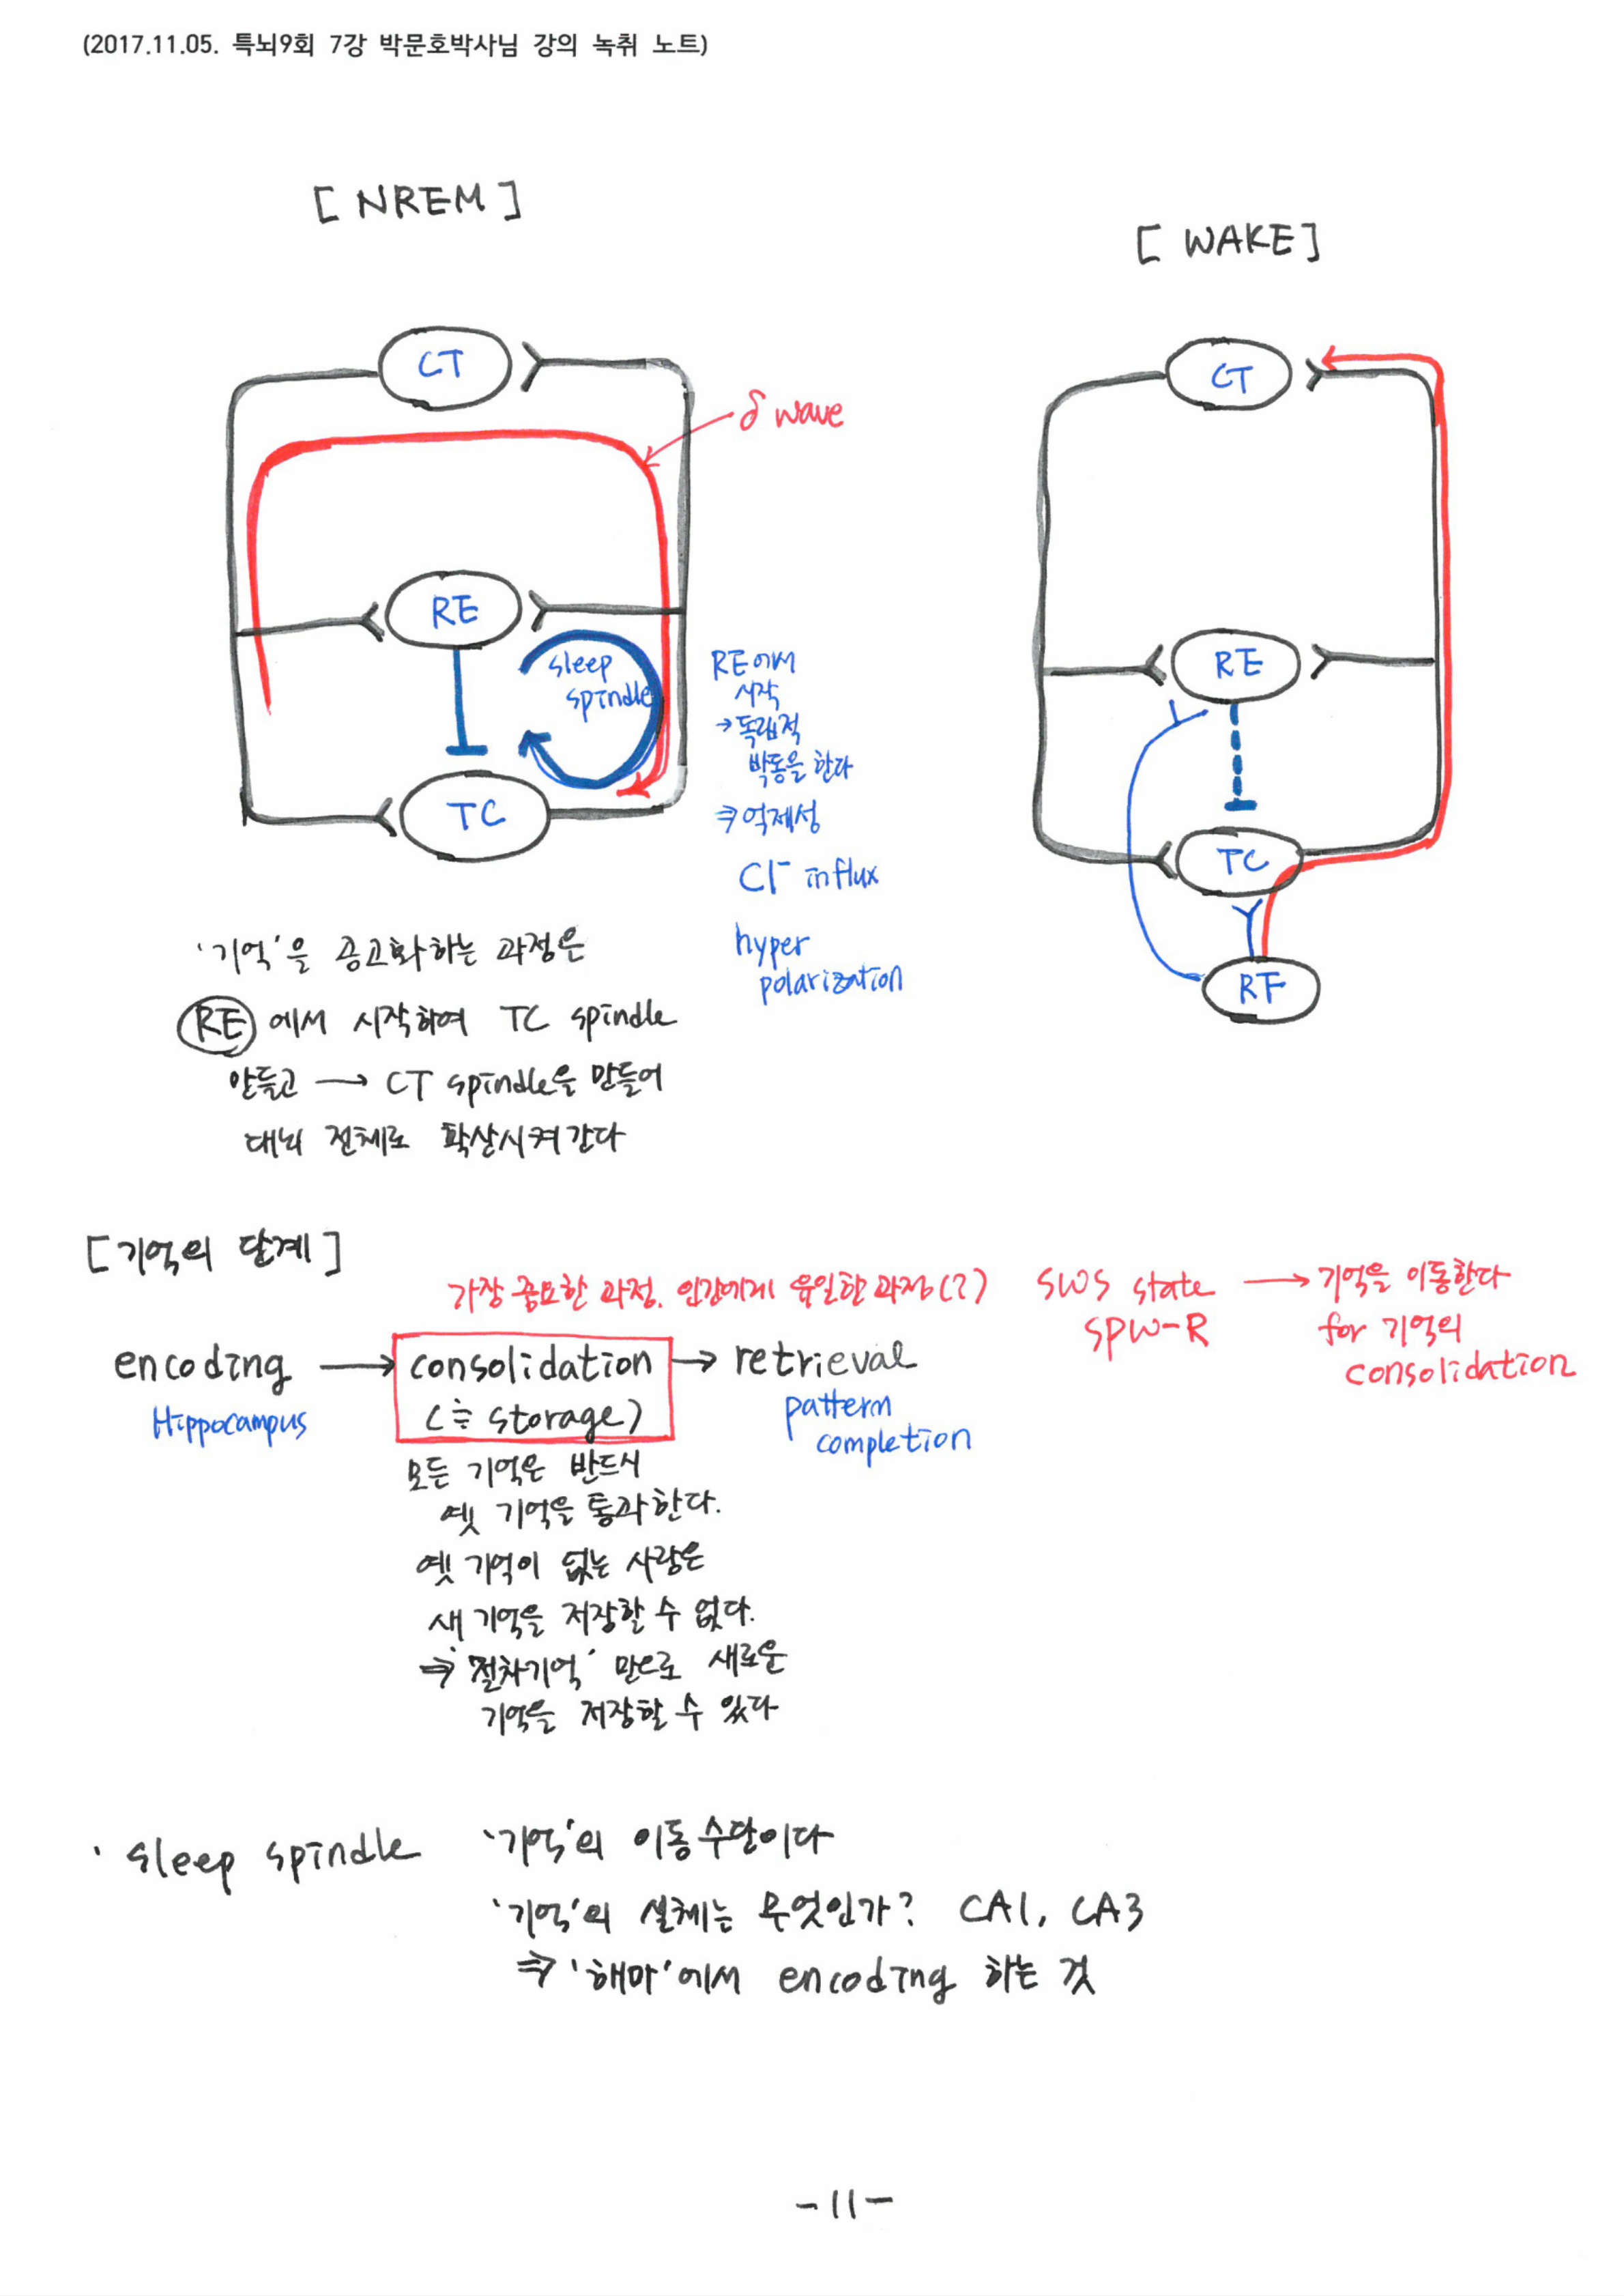 (2017.11.05. 특뇌9회 7강 박문호박사님 강의 녹취 노트)
[ NREM ]
[ WAKE ]
CT
δ wave
RE
sleep
spindle
TC
RE에서
시작
→ 독립적
박동을 한다
⇒ 억제성
Cl⁻ influx
hyper
polarization
CT
RE
TC
RF
'기억'을 공고화하는 과정은
RE 에서 시작하여 TC spindle
만들고 → CT spindle을 만들어
대뇌 전체로 확산시켜간다
[기억의 단계]
가장 중요한 과정. 인간에게 유일한 과정(?)
SWS state → 기억을 이동한다
SPW-R for 기억의
consolidation
encoding → consolidation → retrieval
Hippocampus (≒ storage) pattern
completion
모든 기억은 반드시
옛 기억을 통과한다.
옛 기억이 없는 사람은
새 기억을 저장할 수 없다.
⇒ '절차기억' 만으로 새로운
기억을 저장할 수 있다
· sleep spindle '기억'의 이동수단이다
'기억'의 실체는 무엇인가? CA1, CA3
⇒ '해마'에서 encoding 하는 것
-11-